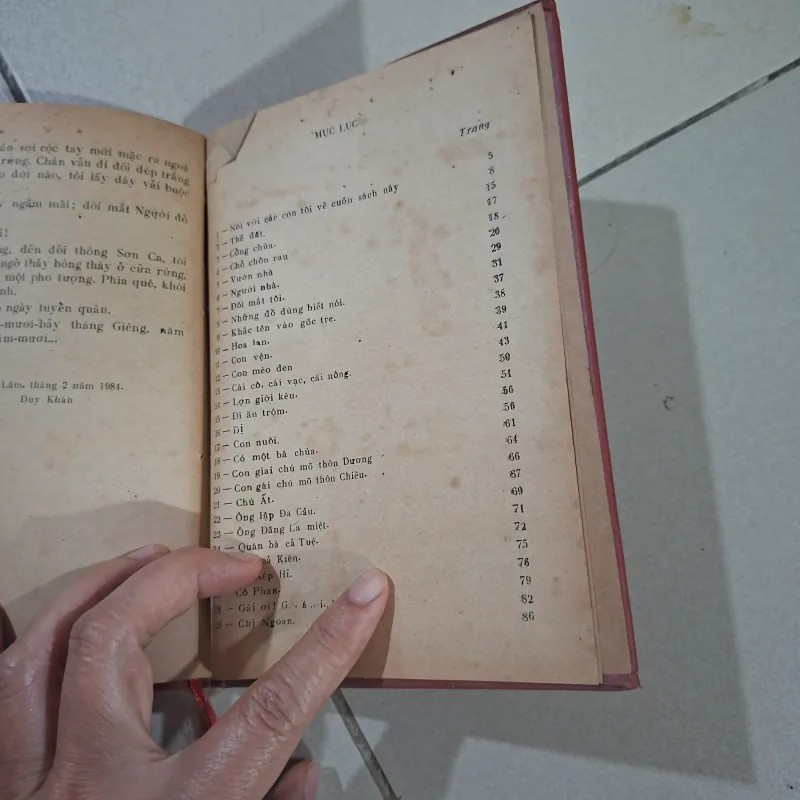 áo sợi cộc tay mới mặc ra ngoà
rừng. Chân vẫn đi đôi dép trắng
đời nào, tôi lấy dây vải buộc
ngắm mãi; đôi mắt Người đỏ
đến đồi thông Sơn Ca, tôi
ngờ thấy bóng thày ở cửa rừng,
một pho tượng. Phía quê, khói
ngày tuyển quân.
-mươi-bảy tháng Giêng, năm
Lâm, tháng 2 năm 1984.
Duy Khán
MỤC LỤC
Trang
1 — Nói với các con tôi về cuốn sách này 5
2 — Thế đất. 8
3 — Cồng chúa. 15
4 — Chỗ chôn rau 17
5 — Vườn nhà 18
6 — Người nhà. 20
7 — Đôi mắt tôi. 29
8 — Những đồ dùng biết nói. 31
9 — Khắc tên vào gốc tre. 37
10 — Hoa lan. 38
11 — Con vện. 39
12 — Con mèo đen 41
13 — Cái cò, cái vạc, cái nông. 43
14 — Lợn giời kêu. 50
15 — Đi ăn trộm. 54
16 — Dị 56
17 — Con nuôi. 56
18 — Có một bà chúa. 61
19 — Con giai chú mõ thôn Dương 64
20 — Con gái chú mõ thôn Chiều. 66
21 — Chú Ất. 67
22 — Ông lập Đa Cầu. 69
23 — Ông Đăng La miệt. 71
24 — Quán bà cả Tuệ. 72
Kiên. 75
Hỉ. 76
Cô Phan. 79
— Gái ơi! 82
— Chị Ngoan. 86